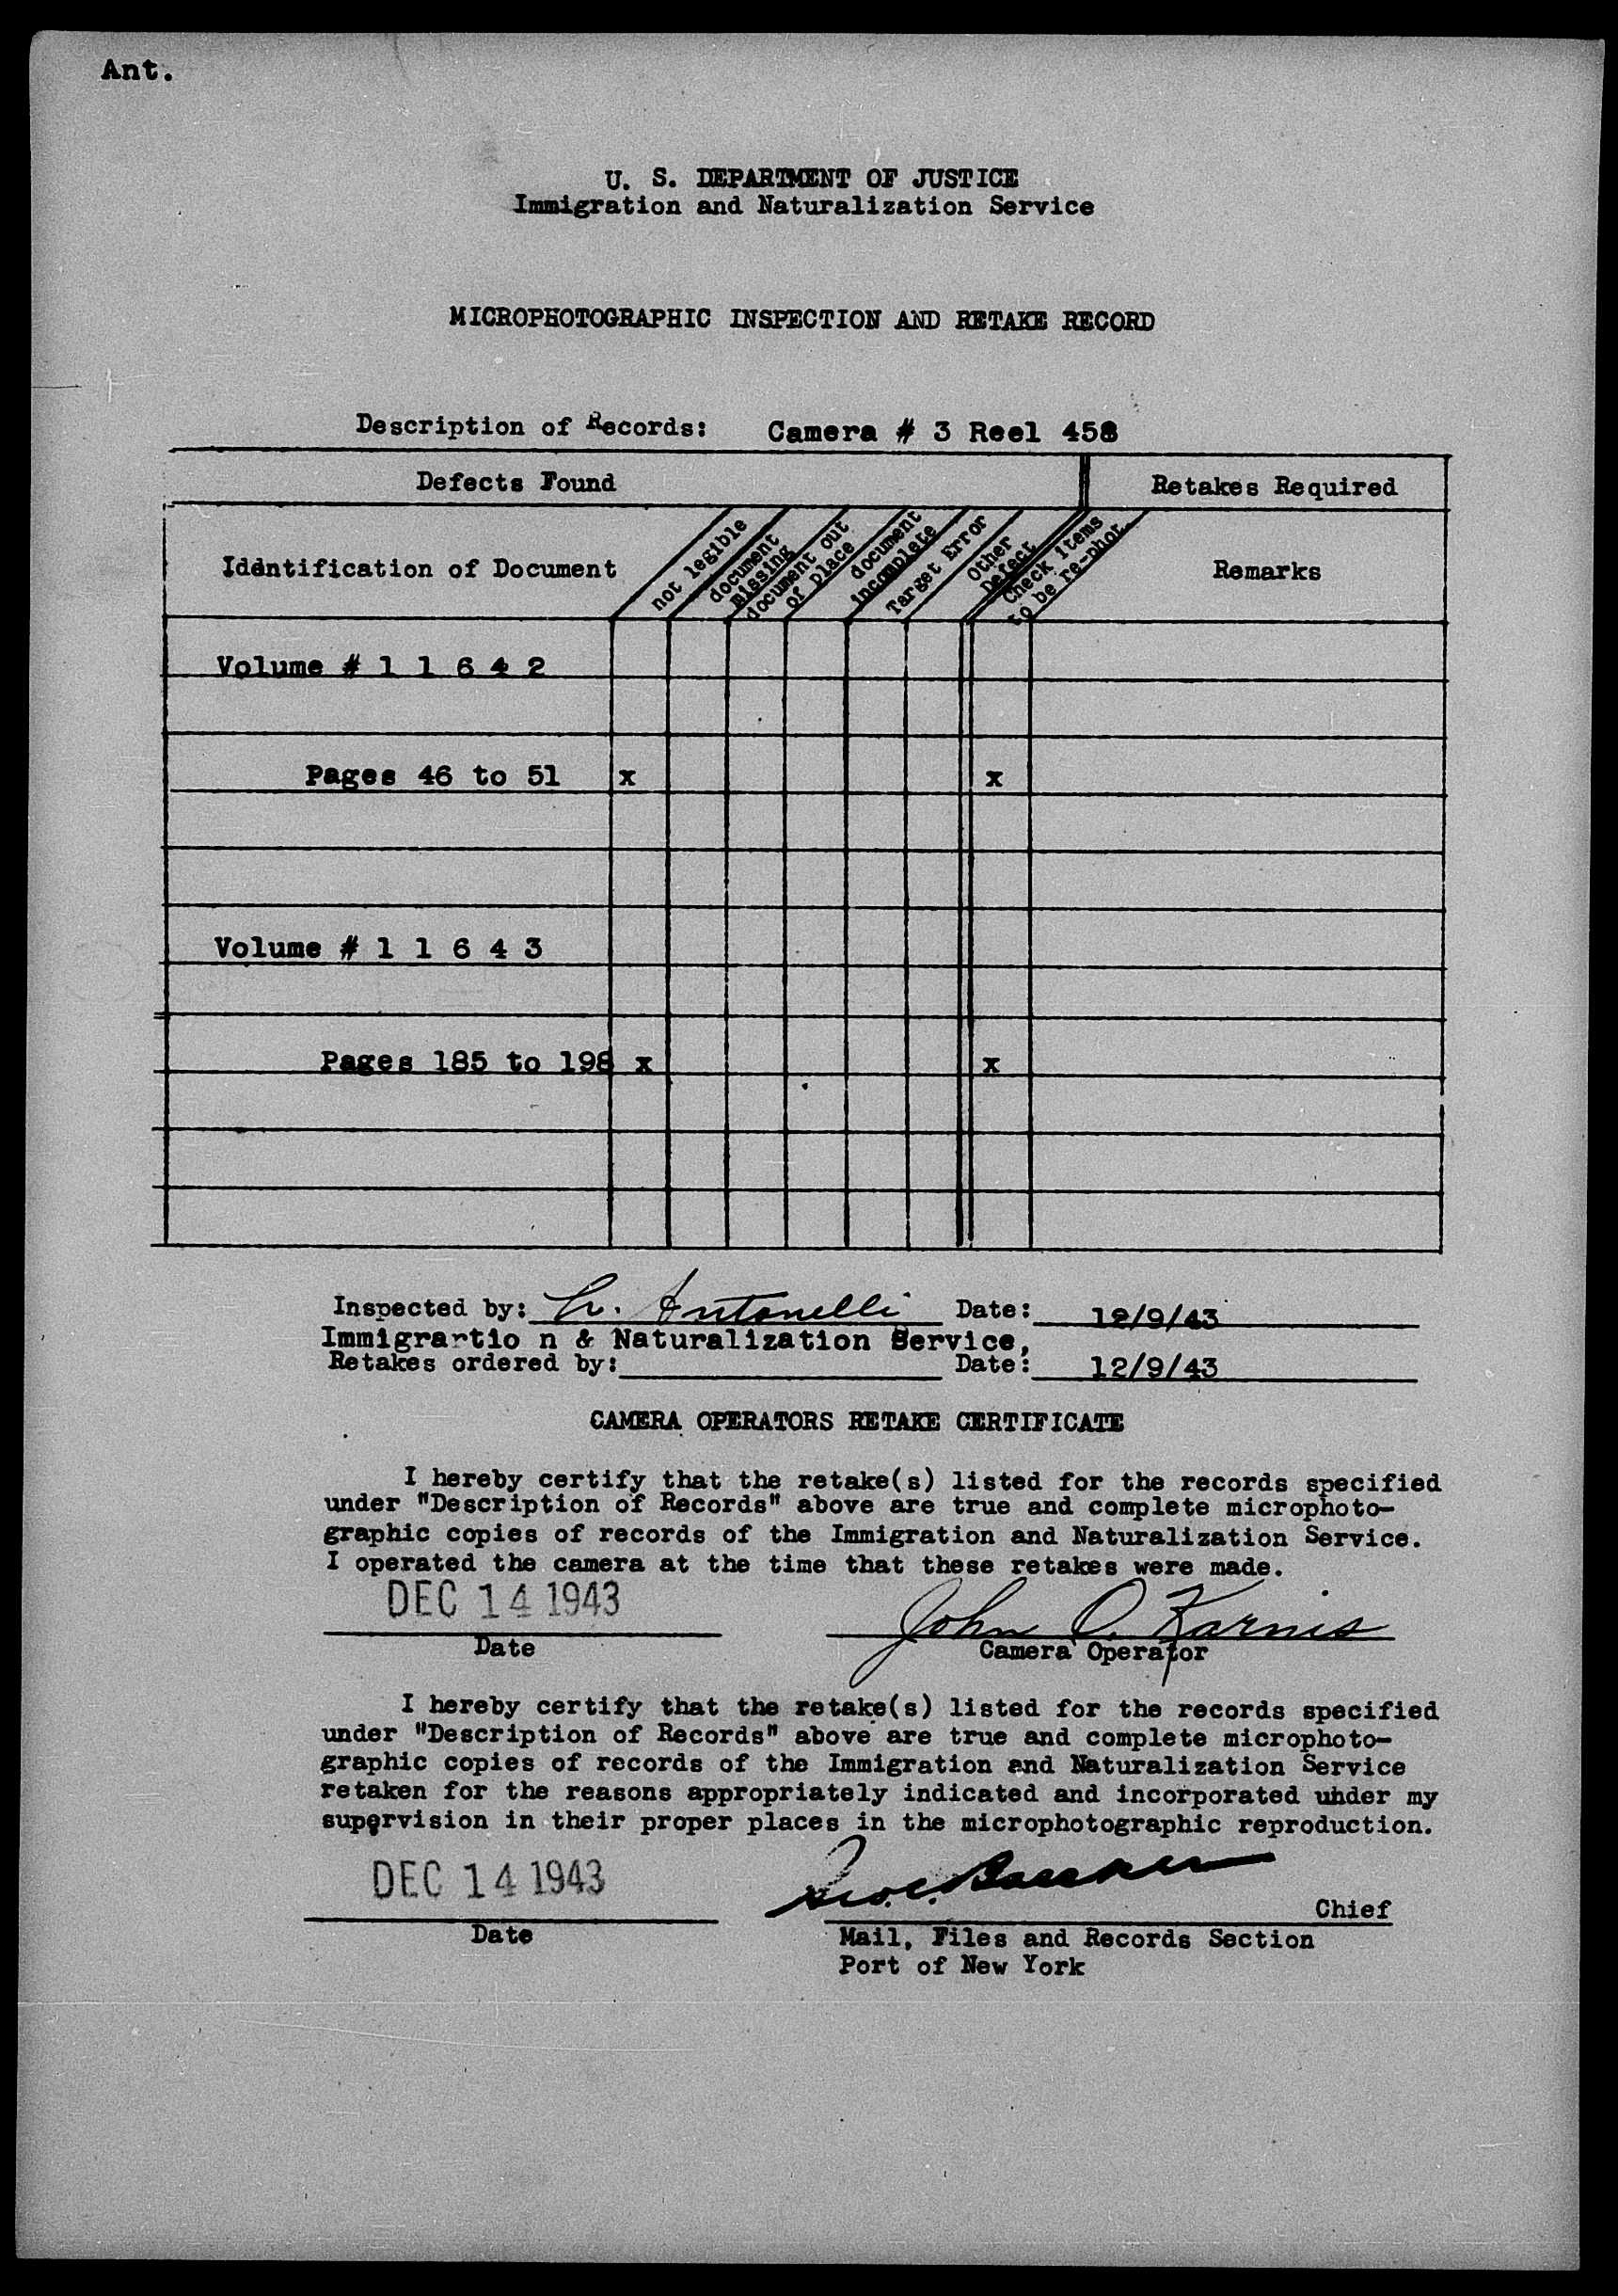 Ant.
U. S. DEPARTMENT OF JUSTICE
Immigration and Naturalization Service
MICROPHOTOGRAPHIC INSPECTION AND RETAKE RECORD
Description of Records: Camera # 3 Reel 458
Defects Found
Retakes Required
Idèntification of Document
not legible
document missing
document out of place
document incomplete
Target Error
Other Defect
Check items to be re-phot.
Remarks
Volume # 1 1 6 4 2
Pages 46 to 51 x x
Volume # 1 1 6 4 3
Pages 185 to 198 x x
Inspected by: L. Antonelli Date: 12/9/43
Immigrartio n & Naturalization Service,
Retakes ordered by: Date: 12/9/43
CAMERA OPERATORS RETAKE CERTIFICATE
I hereby certify that the retake(s) listed for the records specified
under "Description of Records" above are true and complete microphoto-
graphic copies of records of the Immigration and Naturalization Service.
I operated the camera at the time that these retakes were made.
DEC 14 1943
John O. Karnis
Date
Camera Operator
I hereby certify that the retake(s) listed for the records specified
under "Description of Records" above are true and complete microphoto-
graphic copies of records of the Immigration and Naturalization Service
retaken for the reasons appropriately indicated and incorporated under my
supervision in their proper places in the microphotographic reproduction.
DEC 14 1943
Chief
Date
Mail, Files and Records Section
Port of New York